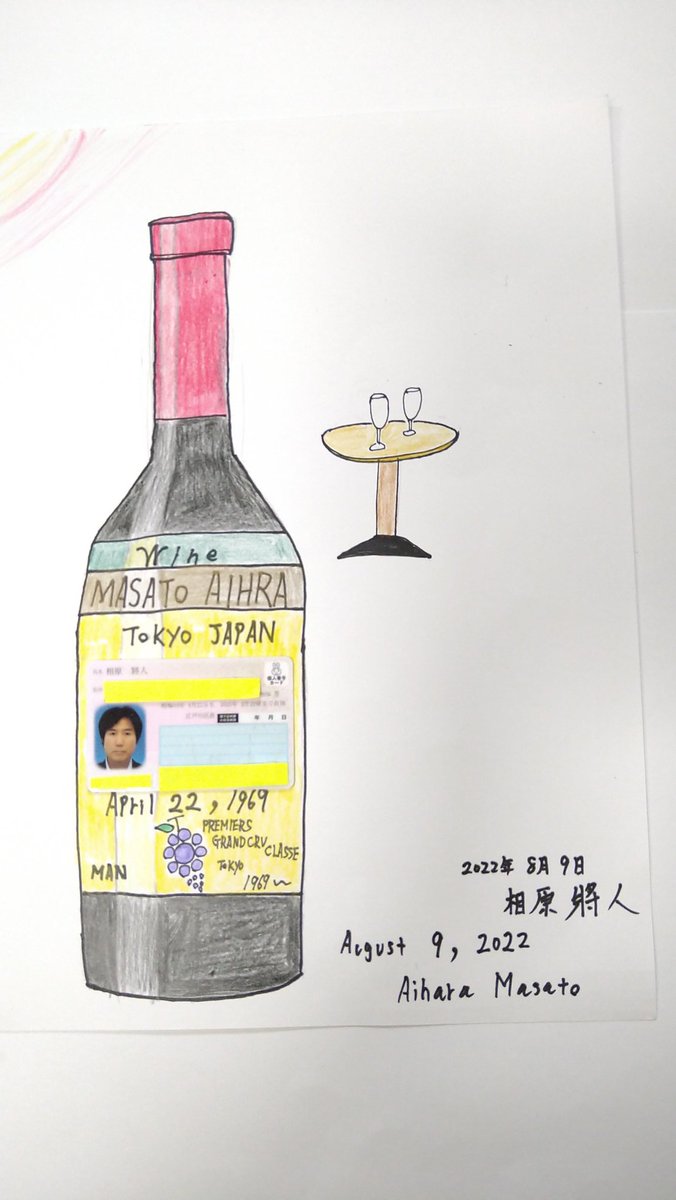 Wine
MASATO AIHRA
TOKYO JAPAN
氏名 相原 將人
個人番号
カード
年 月 日
April 22, 1969
PREMIERS
GRAND CRV
CLASSE
TOKYO
1969~
MAN
2022年 8月 9日
相原 將人
August 9, 2022
Aihara Masato